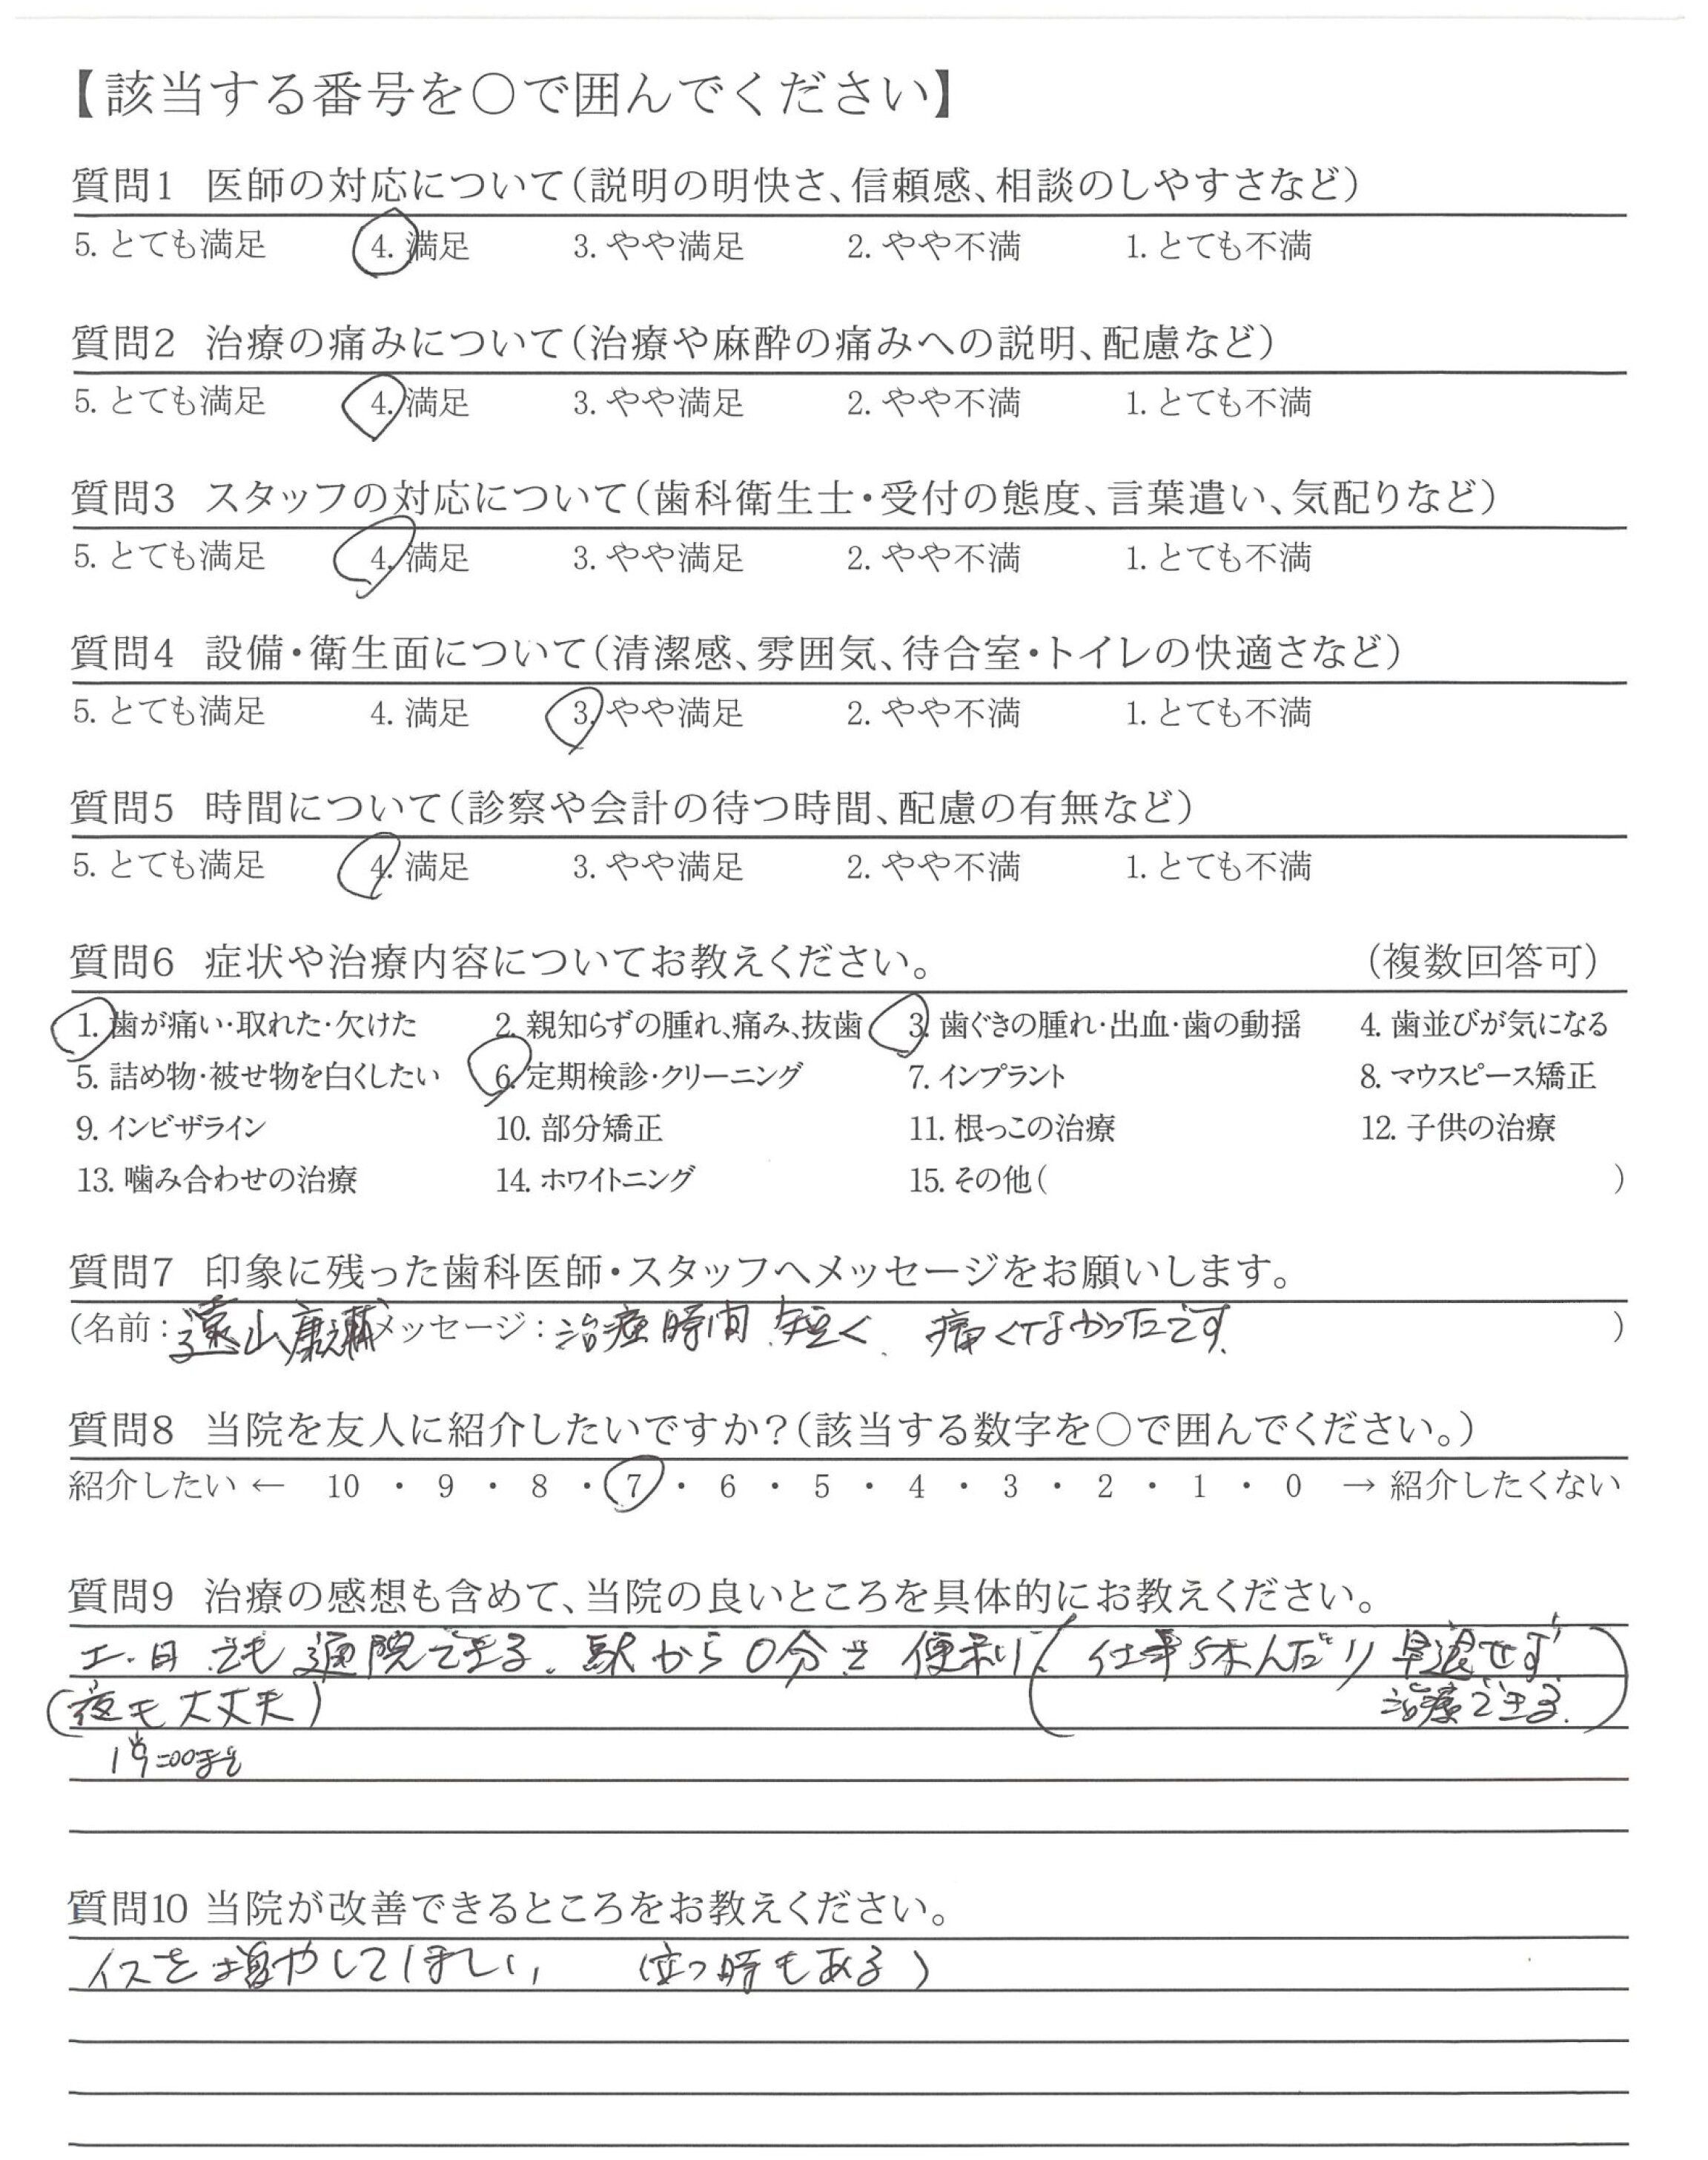 【該当する番号を○で囲んでください】
質問1 医師の対応について(説明の明快さ、信頼感、相談のしやすさなど)
5. とても満足 4. 満足 3. やや満足 2. やや不満 1. とても不満
質問2 治療の痛みについて(治療や麻酔の痛みへの説明、配慮など)
5. とても満足 4. 満足 3. やや満足 2. やや不満 1. とても不満
質問3 スタッフの対応について(歯科衛生士・受付の態度、言葉遣い、気配りなど)
5. とても満足 4. 満足 3. やや満足 2. やや不満 1. とても不満
質問4 設備・衛生面について(清潔感、雰囲気、待合室・トイレの快適さなど)
5. とても満足 4. 満足 3. やや満足 2. やや不満 1. とても不満
質問5 時間について(診察や会計の待つ時間、配慮の有無など)
5. とても満足 4. 満足 3. やや満足 2. やや不満 1. とても不満
質問6 症状や治療内容についてお教えください。 (複数回答可)
1. 歯が痛い・取れた・欠けた 2. 親知らずの腫れ、痛み、抜歯 3. 歯ぐきの腫れ・出血・歯の動揺 4. 歯並びが気になる
5. 詰め物・被せ物を白くしたい 6. 定期検診・クリーニング 7. インプラント 8. マウスピース矯正
9. インビザライン 10. 部分矯正 11. 根っこの治療 12. 子供の治療
13. 噛み合わせの治療 14. ホワイトニング 15. その他( )
質問7 印象に残った歯科医師・スタッフへメッセージをお願いします。
(名前:遠山康之輔 メッセージ:治療時間短く、痛くなかったです。 )
質問8 当院を友人に紹介したいですか?(該当する数字を○で囲んでください。)
紹介したい ← 10 ・ 9 ・ 8 ・ 7 ・ 6 ・ 5 ・ 4 ・ 3 ・ 2 ・ 1 ・ 0 → 紹介したくない
質問9 治療の感想も含めて、当院の良いところを具体的にお教えください。
土・日でも通院できる。駅から0分で便利(仕事休んだり早退せず
(夜も大丈夫) 治療できる。)
19:00まで
質問10 当院が改善できるところをお教えください。
イスを増やしてほしい (立つ時もある)